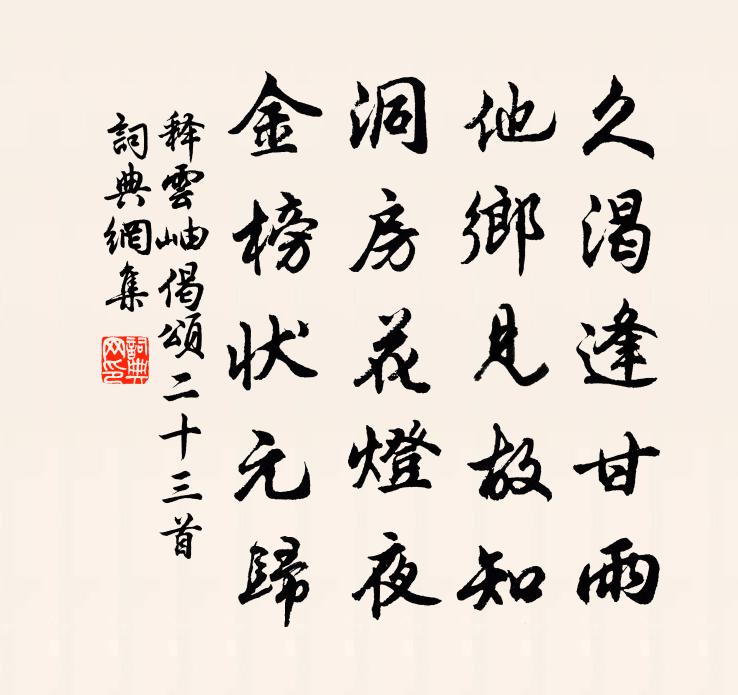 久渴逢甘雨
他鄉見故知
洞房花燈夜
金榜状元歸
释雲岫偈頌二十三首
詞典網集
詞典网印